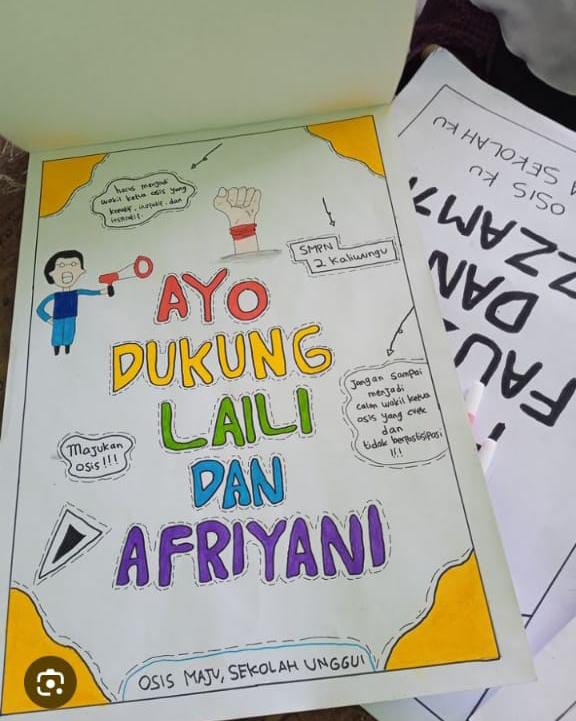 harus menjadi
wakil ketua osis yang
kreatif, inofatif, dan
SMPN
2 Kaliwungu
AYO
DUKUNG
LAILI
DAN
AFRIYANI
Jangan sampai
menjadi
calon wakil ketua
osis yang cuek
dan
tidak berpartisipasi
!!!
Majukan
osis!!!
OSIS MAJU, SEKOLAH UNGGUL
SEKOLAH KU
OSIS KU
DAN